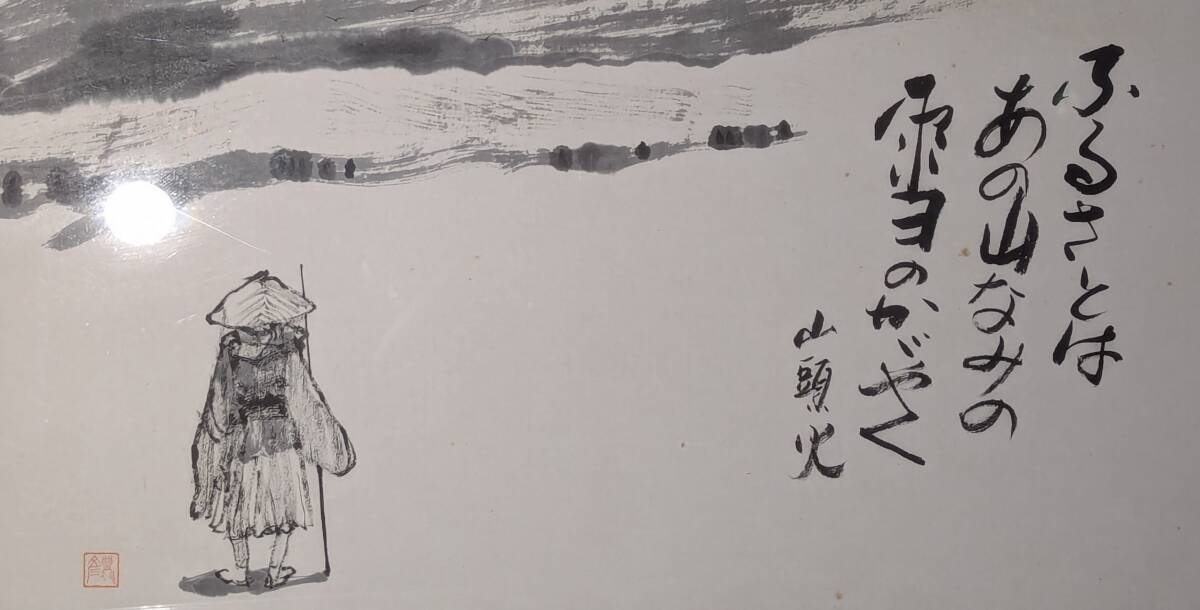 ふるさとは
あの山なみの
雪のかがやく
山頭火